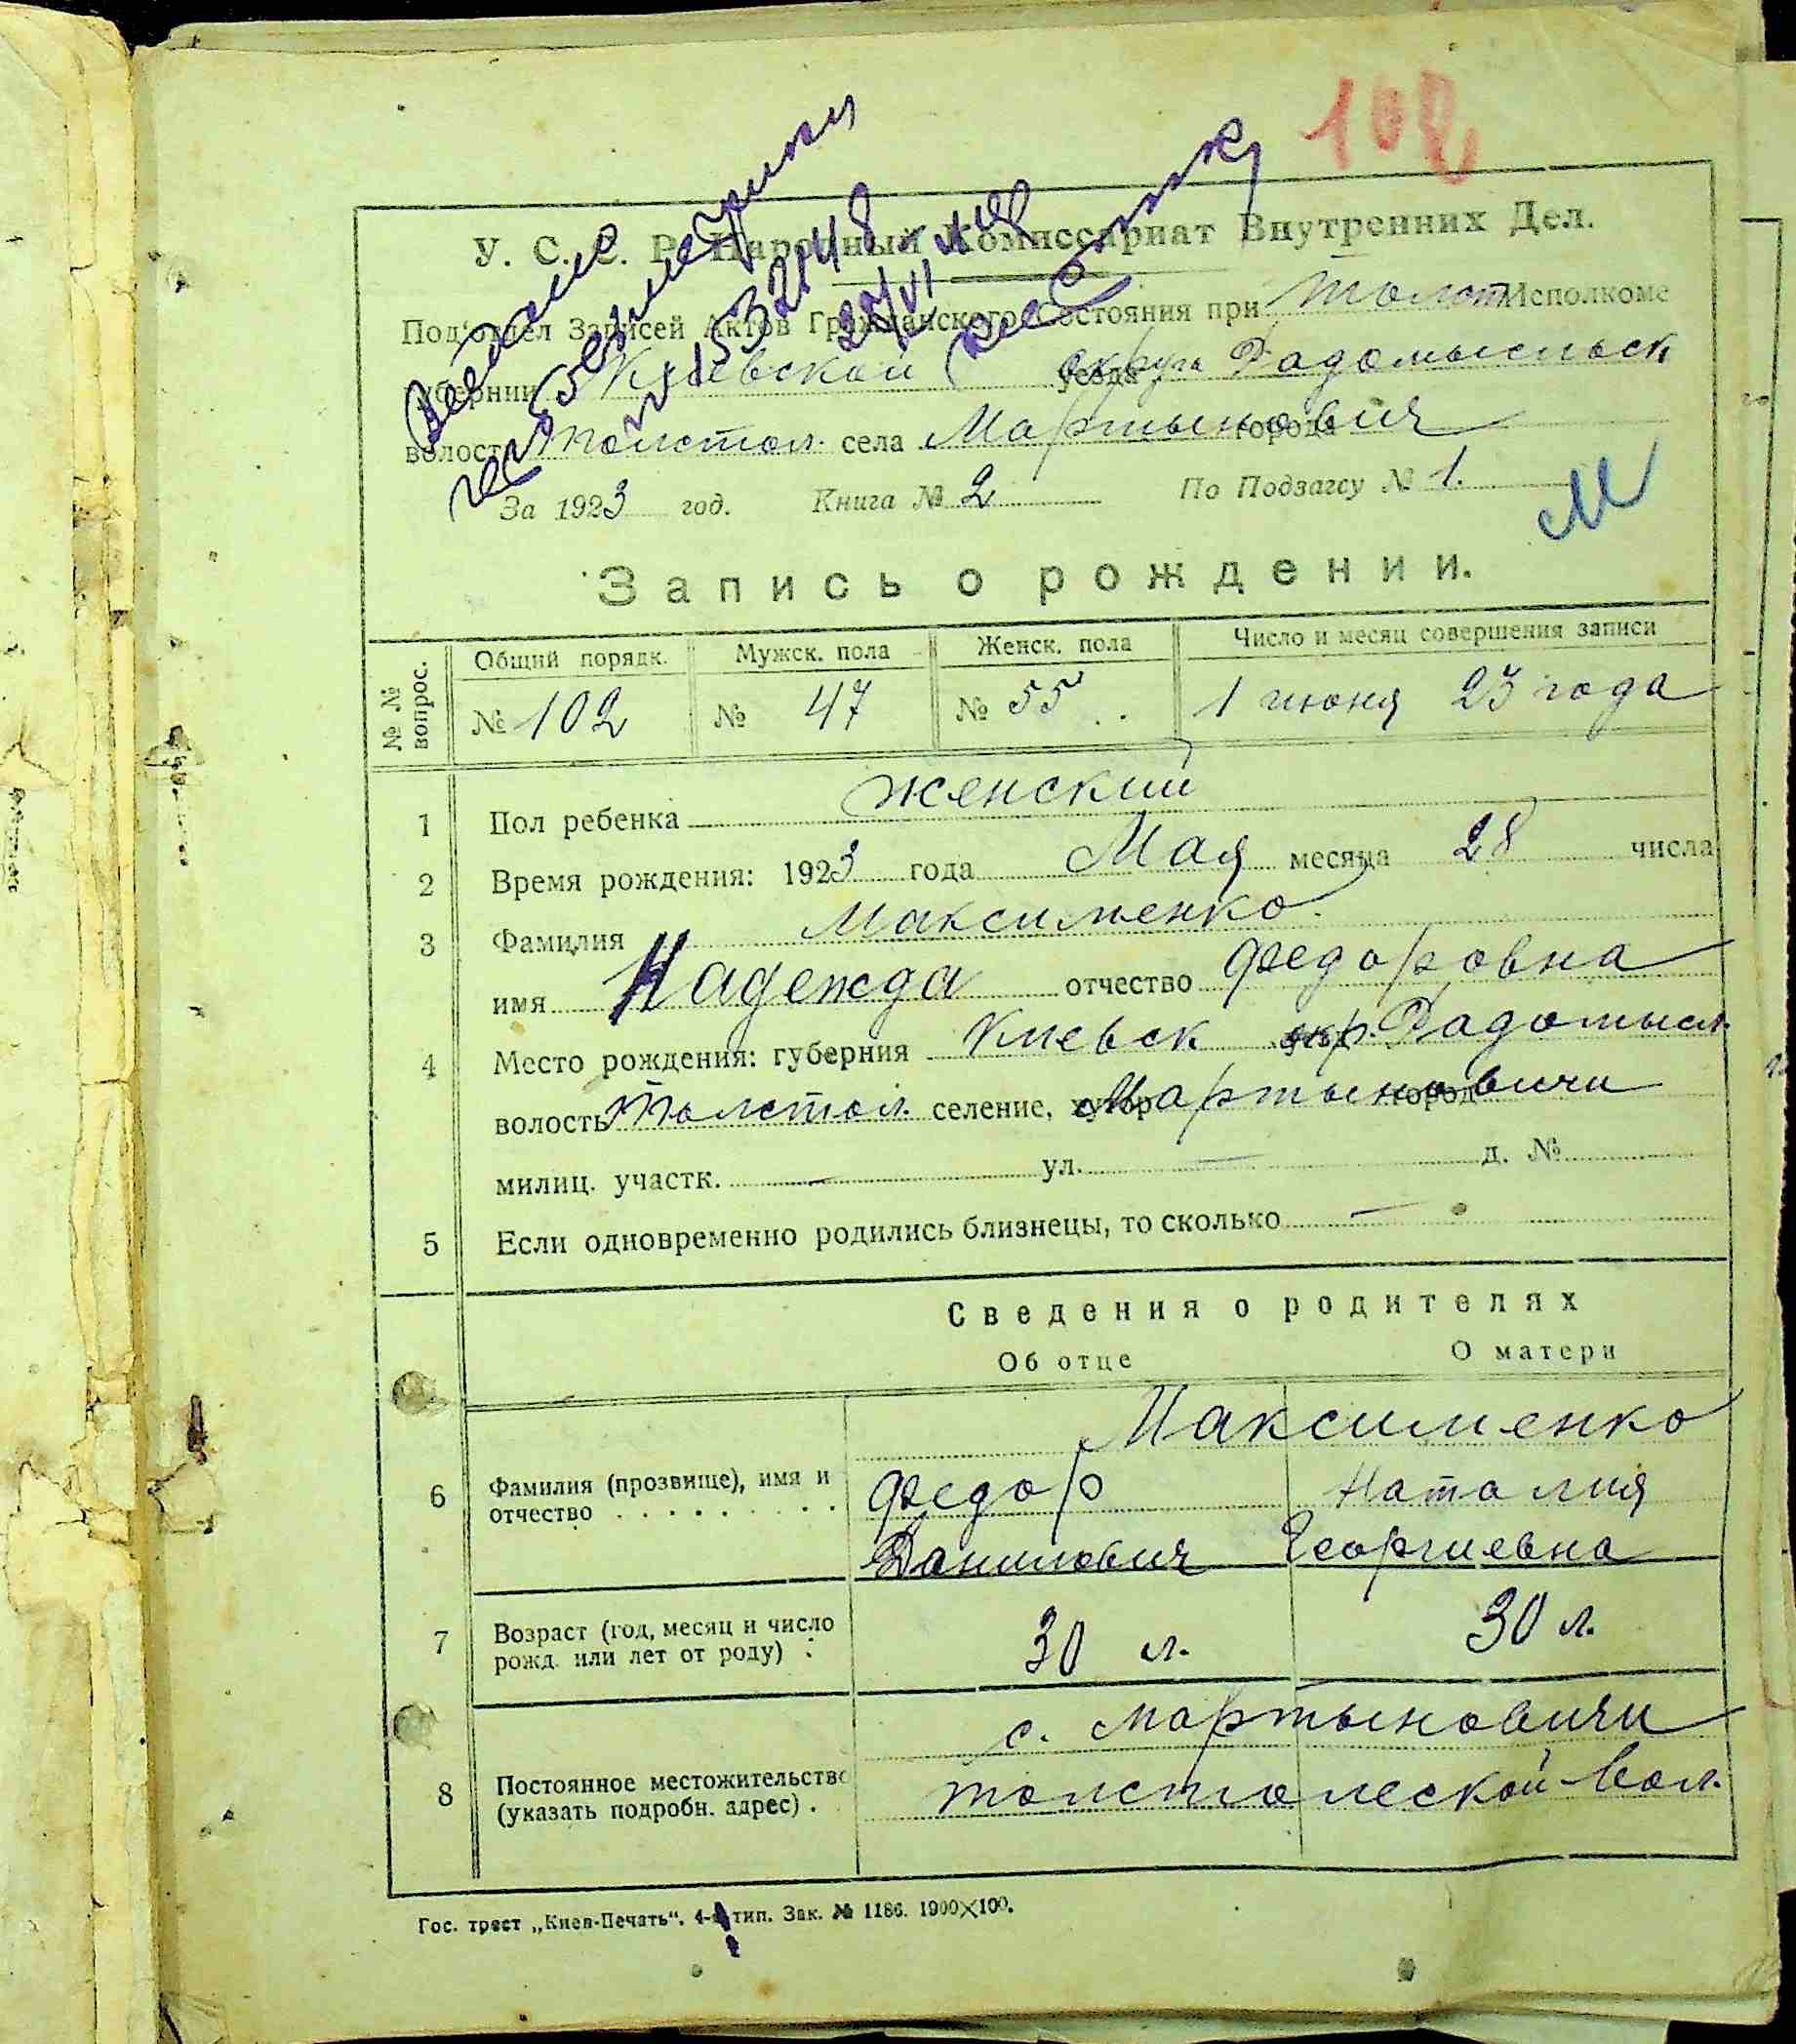 102
У. С. С. Р. Народный Комиссариат Внутренних Дел.
Под'отдел Записей Актов Гражданского Состояния при Исполкоме
губернии Киевской уезда округа Радомысльск
волости Толстол. села Мартынович города
За 1923 год. Книга № 2 По Подзагсу № 1.
М
Запись о рождении.
№ № вопрос.
Общий порядк. Мужск. пола Женск. пола Число и месяц совершения записи
№ 102 № 47 № 55 1 июня 23 года
1 Пол ребенка женский
2 Время рождения: 1923 года Мая месяца 28 числа
3 Фамилия Максименко.
имя Надежда отчество Федоровна
4 Место рождения: губерния Киевск окр. Радомысл.
волость Толстол. селение, хутор Мартыновичи город
милиц. участк. — ул. — д. №
5 Если одновременно родились близнецы, то сколько —
Сведения о родителях
Об отце О матери
Максименко
6 Фамилия (прозвище), имя и отчество Федор Наталия
Данилович Георгиевна
7 Возраст (год, месяц и число рожд. или лет от роду) 30 л. 30 л.
с. Мартыновичи
8 Постоянное местожительство (указать подробн. адрес) Толстолеской вол.
Гос. трест „Киев-Печать". 4-я тип. Зак. № 1186. 1900×100.